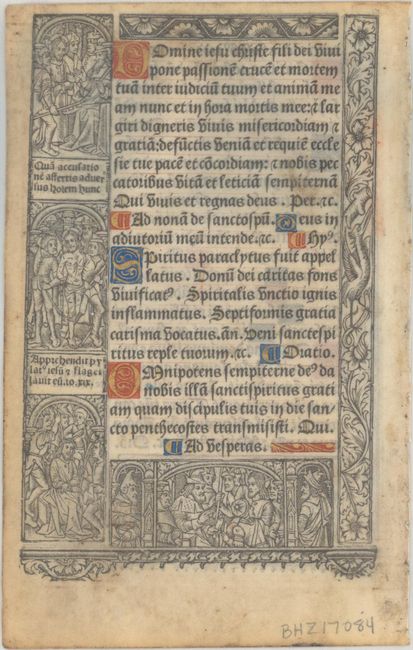 Domine iesu christe fili dei viui
pone passionē crucē et mortem
tuā inter iudiciū tuum et animā me
am nunc et in hora mortis mee: ⁊ lar
giri digneris viuis misericordiam ⁊
gratiā: defūctis veniā et requiē eccle
sie tue pacē et cōcordiam: ⁊ nobis pec
catoribus vitā et leticiā sempiternā
Qui viuis et regnas deus. Per. ⁊c.
Ad nonā de sancto spū. Deus in
adiutoriū meū intende. ⁊c. Hyꝰ.
Spiritus paraclytus fuit appel
latus. Donū dei caritas fons
viuificatꝰ. Spiritalis vnctio ignis
inflammatus. Septiformis gratia
carisma vocatus. añ. Veni sanctespi
ritus reple tuorum. ⁊c. Oratio.
Omnipotens sempiterne deꝰ da
nobis illā sanctispiritus grati
am quam discipulis tuis in die san
cto penthecostes transmisisti. Qui.
Ad vesperas.
Quā accusatio
nē affertis aduer
sus hoīem hunc
Apprehendit py
latꝰ iesū ⁊ flagel
lauit eū. io. xix.
BHZ17084